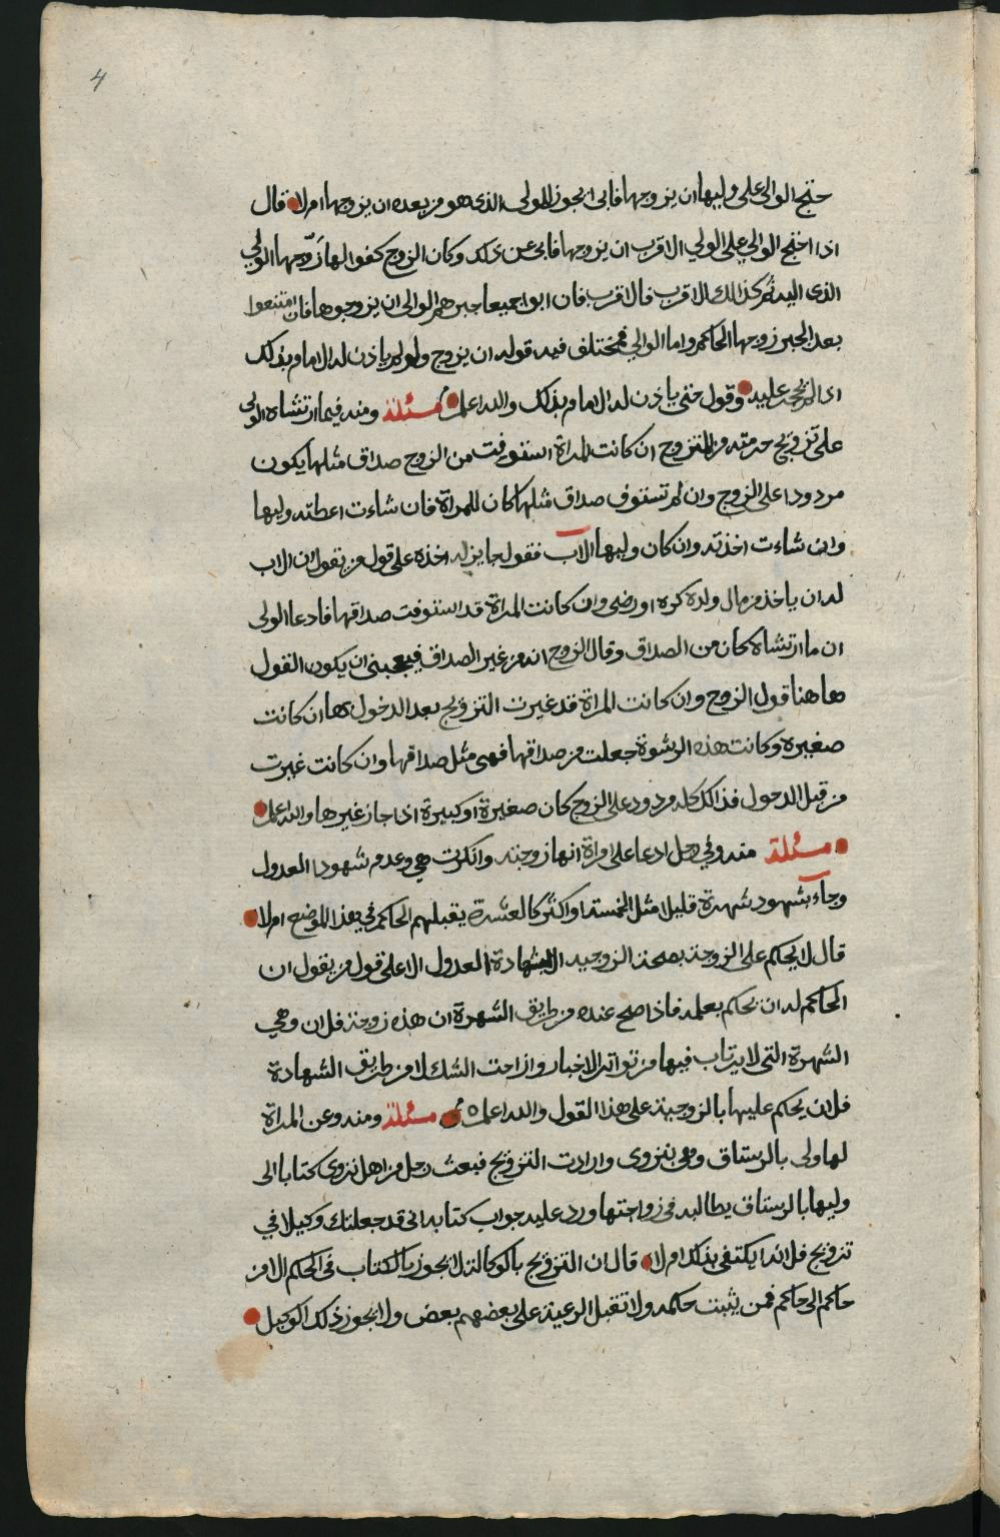 4
حتج الوالي على وليها ان يزوجها فابى ايجوز للولي الذي هو من بعده ان يزوجها ام لا قال
اذا احتج الوالي على الولي الاقرب ان يزوجها فابى عن ذلك وكان الزوج كفوا لها زَوّجها الولي
الذي اليه ثم كذالك الاقرب فالاقرب فان ابوا جميعا جبرهم الوالي ان يزوجوها فان امتنعوا
بعد الجبر زوجها الحاكم واما الوالي فمختلف فيه قول له ان يزوج ولو لم ياذن له الامام بذلك
اذا لم يحجر عليه وقول حتى ياذن له الامام بذلك والله اعلم مسئلة ومنه فيما ارتشاه الولي
على تزويج حرمته من المتزوج ان كانت المراة استوفت من الزوج صداق مثلها يكون
مردودا على الزوج وان لم تستوف صداق مثلها كان للمراة فان شاءت اعطته وليها
وان شاءت اخذته وان كان وليها الاب فقول جايز له اخذه على قول من يقول ان الاب
له ان ياخذ من مال ولده كره او رضي وان كانت المراة قد استوفت صداقها فادعا الولي
ان ما ارتشاه كان من الصداق وقال الزوج انه من غير الصداق فيعجبني ان يكون القول
هاهنا قول الزوج وان كانت المراة قد غيرت التزويج بعد الدخول بها ان كانت
صغيره وكانت هذه الرشوة جعلت من صداقها فهي مثل صداقها وان كانت غيرت
من قبل الدخول فذالك كله مردود على الزوج كان صغيرة او كبيرة اذا جاز غيرها والله اعلم
مسئلة منه وفي رجل ادعا على امراة انها زوجته وانكرت هي وعدم شهودا العدول
وجاء بشهود شهرة قليلا مثل الخمسة او اكثر كالعشرة يقبلهم الحاكم في هذا الموضع ام لا
قال لا يحكم على الزوجة بصحة الزوجيه الا بشهادة العدول الا على قول من يقول ان
الحاكم له ان يحكم بعلمه فاذا صح عنده من طريق الشهرة ان هذه زوجة فلان وهي
الشهرة التي لا يرتاب فيها من تواتر الاخبار وازاحت الشك لا من طريق الشهادة
فله ان يحكم عليها بالزوجية على هذا القول والله اعلم مسئلة ومنه وعن المراة
لها ولي بالرستاق وهي بنزوى وارادت التزويج فبعث رجل من اهل نزوى كتابا الى
وليها بالرستاق يطالبه في زواجتها ورد عليه جواب كتابه اني قد جعلتك وكيلا في
تزويج فلانه ايكتفى بذلك ام لا قال ان التزويج بالوكالة لا يجوز بالكتاب في الحكم الا من
حاكم الى حاكم فمن يثبت حكمه ولا تقبل الرعية على بعضهم بعض ولا يجوز ذلك الوكيل